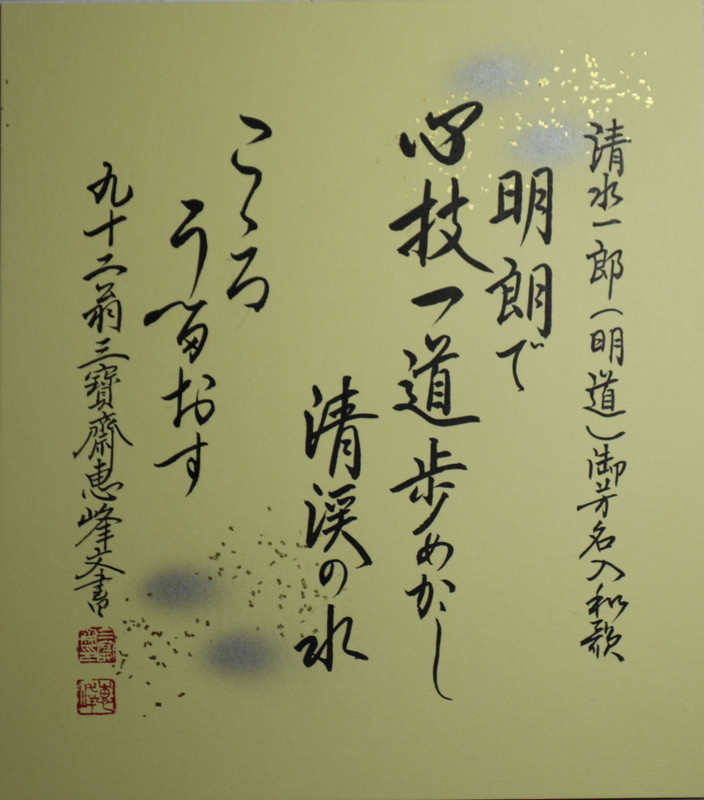 清水一郎(明道)御芳名入和歌
明朗で
心技一道歩めかし
清渓の水
こゝろ
うるおす
九十二翁三寶齋恵峰文書